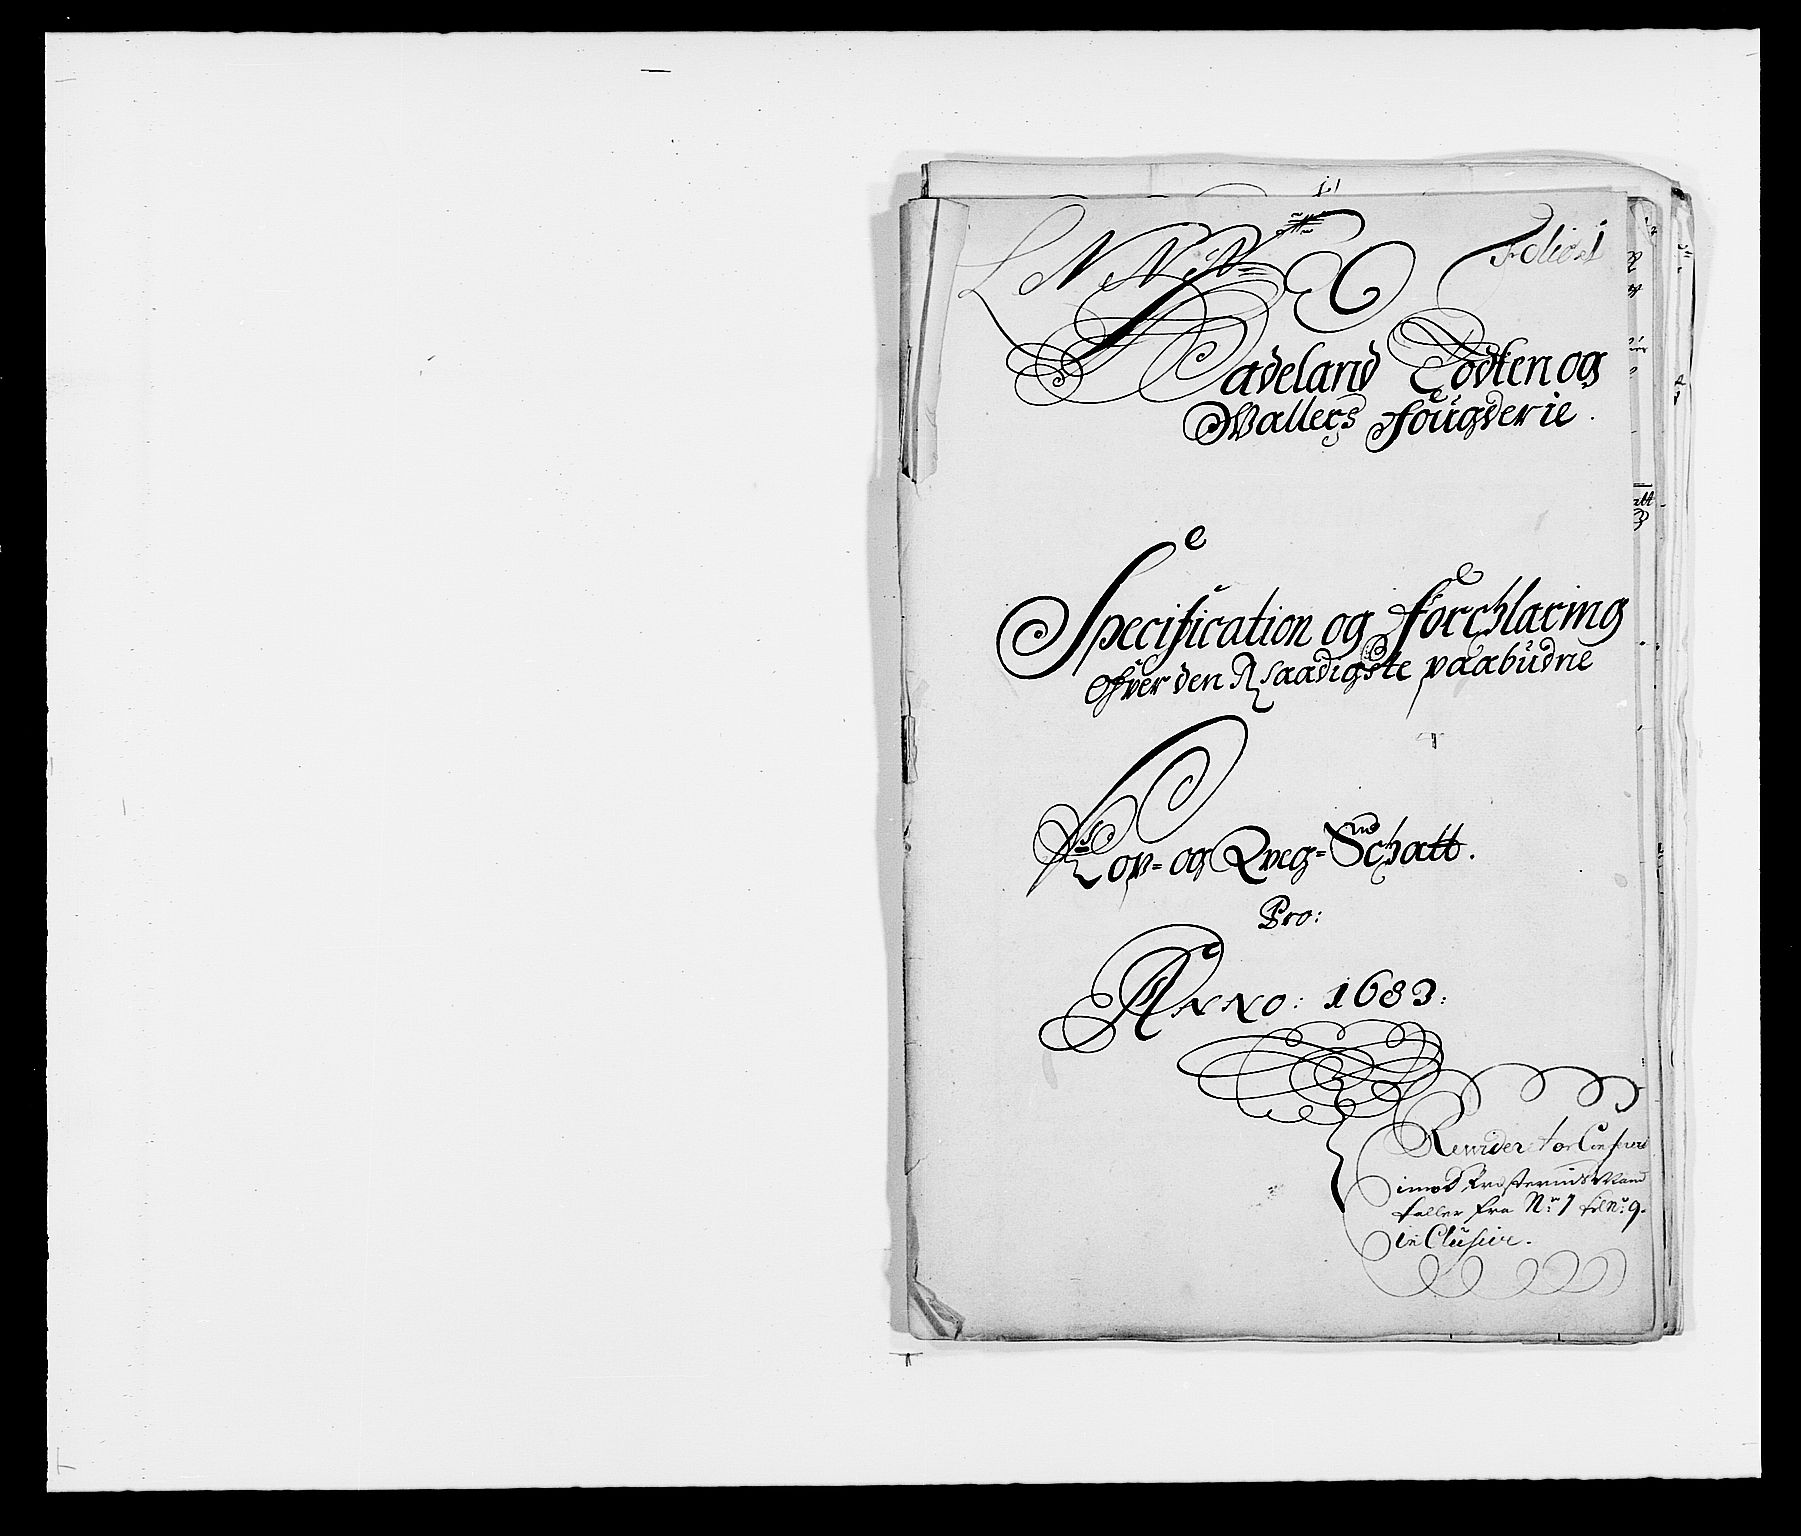 Folio 1
L N N N
Hadeland Todten og
Wallers fougderie.
Specification og forchlaring
Ofver den Naadigste paabudne
Kop- og Qveg-Schatt.
Pro:
Anno: 1683:
Revideret or
imod
faller fra No: 7 til No: 9.
in Clusive.